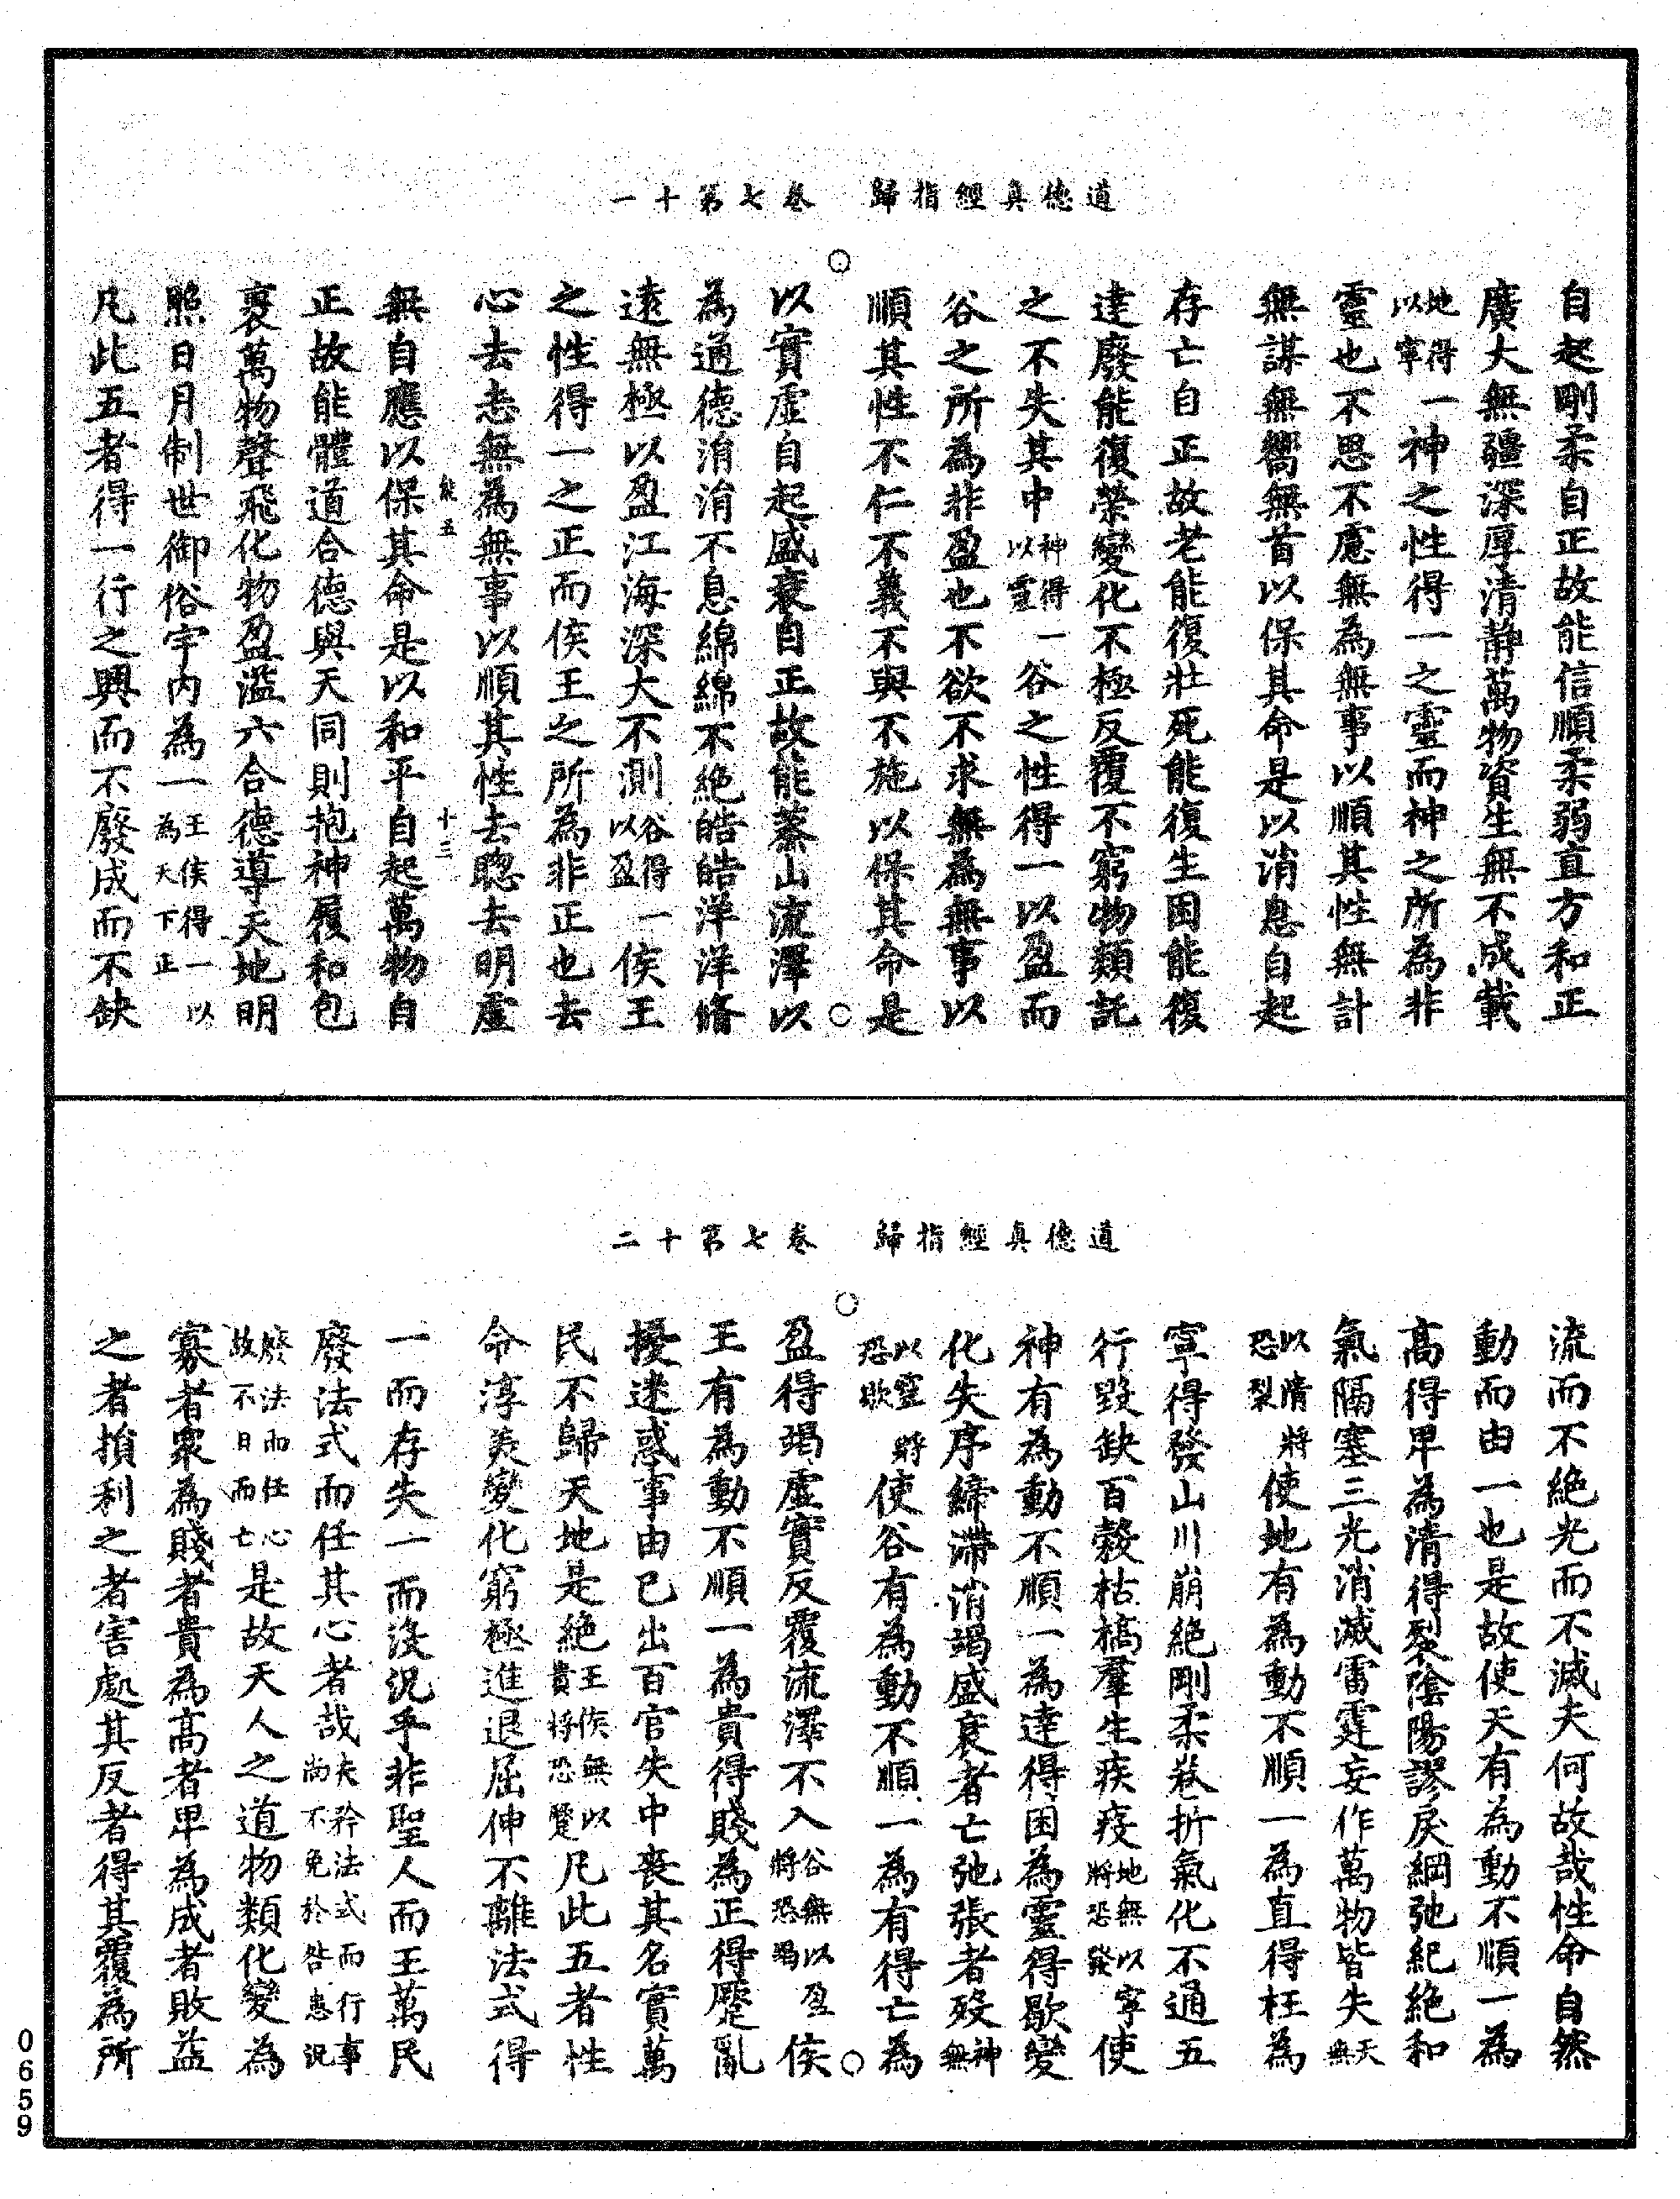 道德真經指歸　卷七第十一
自起剛柔自正故能信順柔弱直方和正
廣大無疆深厚清靜萬物資生無不成載
地得一以寧神之性得一之靈而神之所為非
靈也不思不慮無為無事以順其性無計
無謀無嚮無首以保其命是以消息自起
存亡自正故老能復壯死能復生困能復
達廢能復榮變化不極反覆不窮物類託
之不失其中神得一以靈谷之性得一以盈而
谷之所為非盈也不欲不求無為無事以
順其性不仁不義不與不施以保其命是
以實虛自起盛衰自正故能蓄山流澤以
為通德涓涓不息綿綿不絕皓皓洋洋脩
遠無極以盈江海深大不測谷得一以盈侯王
之性得一之正而侯王之所為非正也去
心去志無為無事以順其性去聰去明虛
能五　十三
無自應以保其命是以和平自起萬物自
正故能體道合德與天同則抱神履和包
裹萬物聲飛化物盈溢六合德導天地明
照日月制世御俗宇內為一王侯得一以為天下正
凡此五者得一行之興而不廢成而不缺
道德真經指歸　卷七第十二
流而不絕光而不滅夫何故哉性命自然
動而由一也是故使天有為動不順一為
高得卑為清得裂陰陽謬戾綱弛紀絕和
氣隔塞三光消滅雷霆妄作萬物皆失天無
以清將恐裂使地有為動不順一為直得枉為
寧得發山川崩絕剛柔卷折氣化不通五
行毀缺百穀枯槁羣生疾疫地無以寧將恐發使
神有為動不順一為達得困為靈得歇變
化失序締滯消竭盛衰者亡弛張者歿神無
以靈將恐歇使谷有為動不順一為有得亡為
盈得竭虛實反覆流澤不入谷無以盈將恐竭侯
王有為動不順一為貴得賤為正得蹷亂
擾迷惑事由己出百官失中喪其名實萬
民不歸天地是絕王侯無以貴將恐蹷凡此五者性
命淳美變化窮極進退屈伸不離法式得
一而存失一而沒況乎非聖人而王萬民
廢法式而任其心者哉夫矜法式而行事尚不免於咎患況
廢法而任心故不日而亡是故天人之道物類化變為
寡者眾為賤者貴為高者卑為成者敗益
之者損利之者害處其反者得其覆為所
0659